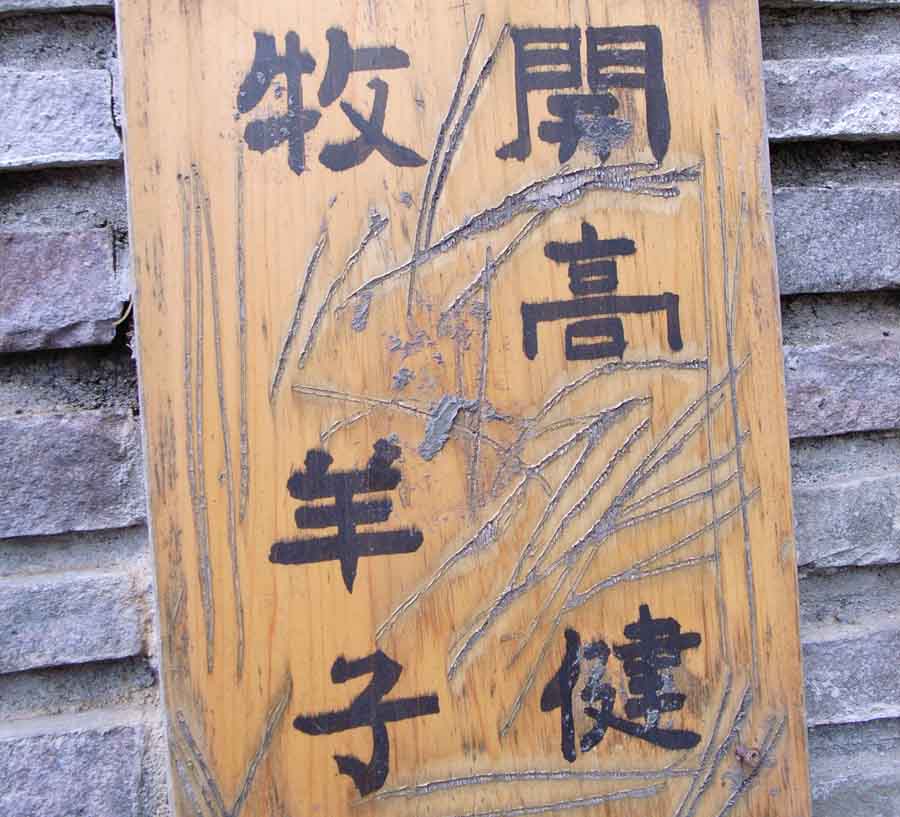 開高健
牧羊子